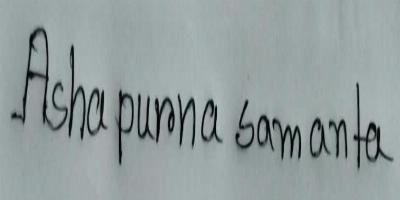 Ashapurna samanta